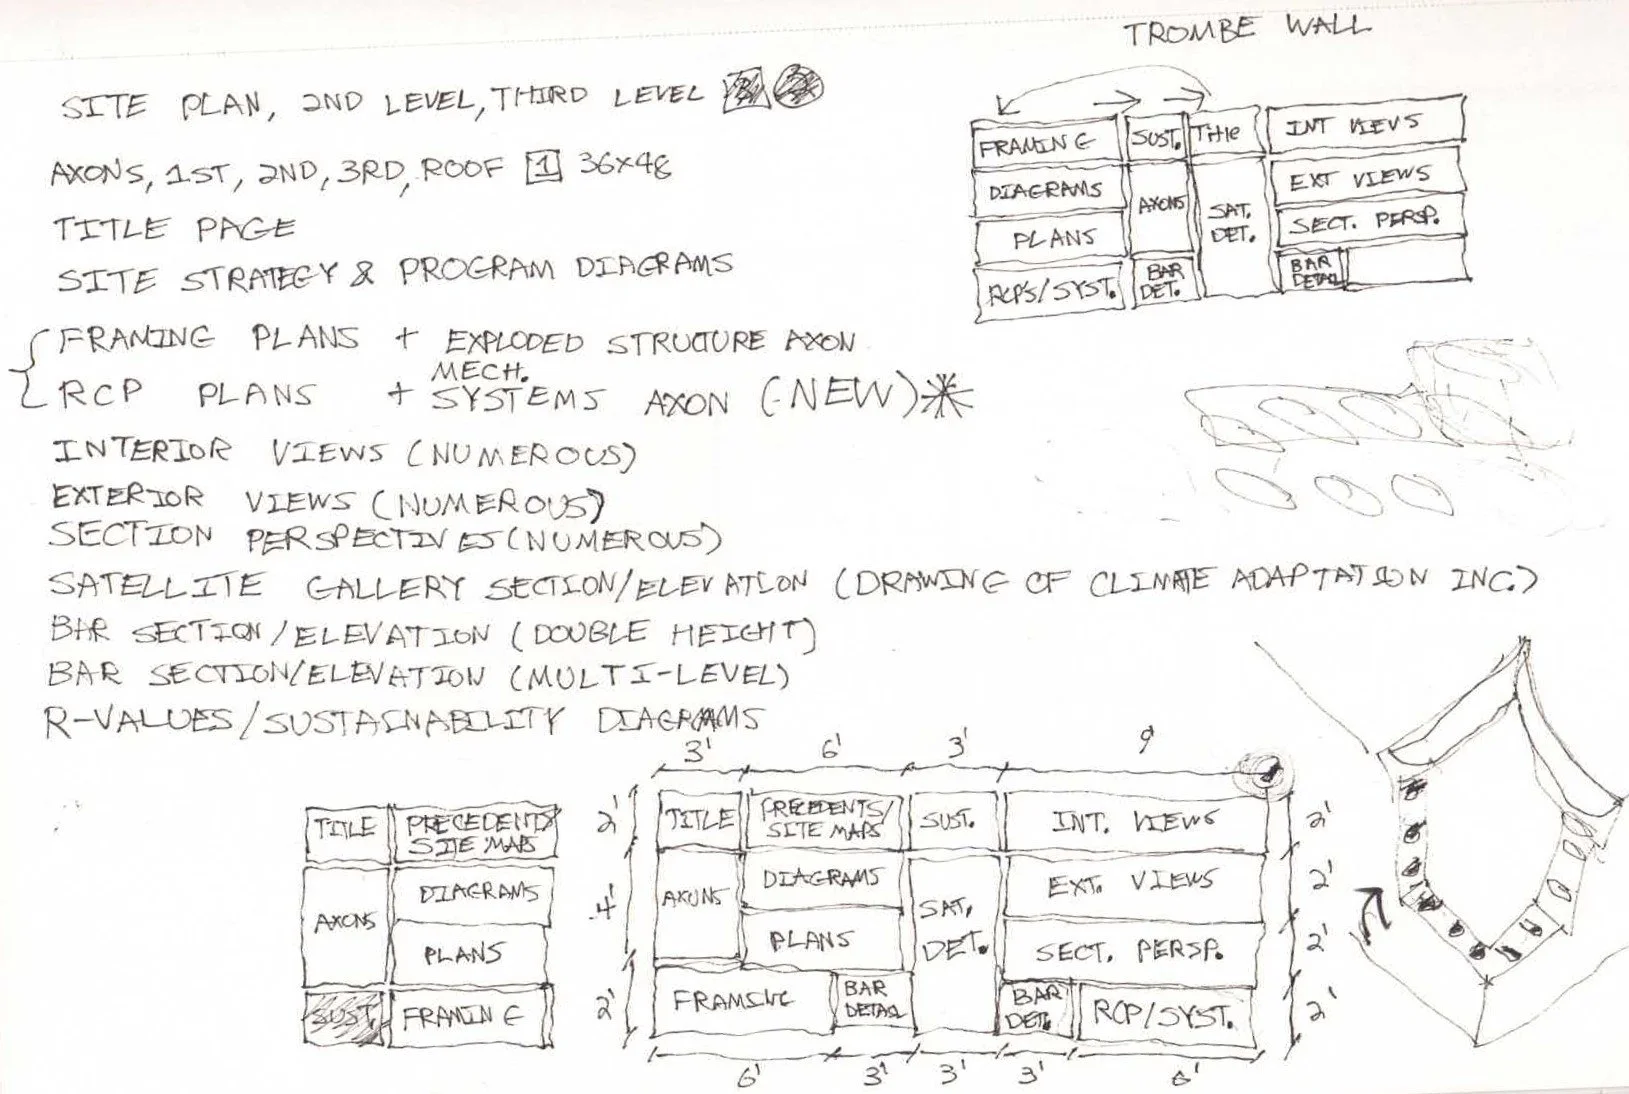 TROMBE WALL
SITE PLAN, 2ND LEVEL, THIRD LEVEL
AXONS, 1ST, 2ND, 3RD, ROOF 1 36X48
TITLE PAGE
SITE STRATEGY & PROGRAM DIAGRAMS
FRAMING PLANS + EXPLODED STRUCTURE AXON
MECH.
RCP PLANS + SYSTEMS AXON (NEW)
INTERIOR VIEWS (NUMEROUS)
EXTERIOR VIEWS (NUMEROUS)
SECTION PERSPECTIVES (NUMEROUS)
SATELLITE GALLERY SECTION/ELEVATION (DRAWING OF CLIMATE ADAPTATION INC.)
BAR SECTION/ELEVATION (DOUBLE HEIGHT)
BAR SECTION/ELEVATION (MULTI-LEVEL)
R-VALUES/SUSTAINABILITY DIAGRAMS
FRAMING SUST. Title INT VIEVS
DIAGRAMS AXONS SAT. DET. EXT VIEWS
PLANS SECT. PERSP.
RCPS/SYST. BAR DET. BAR DETAIL
TITLE PRECEDENTS/
SITE MAPS
AXONS DIAGRAMS
PLANS
SUST. FRAMING
3' 6' 3' 9'
2' TITLE PRECEDENTS/ SUST. INT. VIEWS 2'
SITE MAPS
4' AXONS DIAGRAMS SAT. EXT. VIEWS 2'
PLANS DET. SECT. PERSP. 2'
2' FRAMING BAR BAR RCP/SYST. 2'
DETAIL DET.
6' 3' 3' 3' 6'